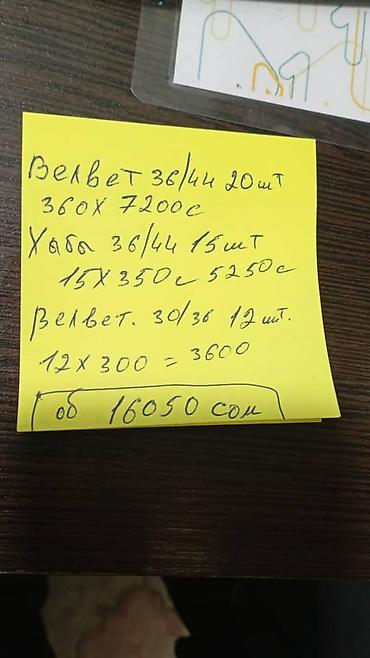 Велвет 36/44 20шт
360х 7200с
Хаба 36/44 15шт
15х350с 5250с
Велвет. 30/36 12шт.
12х300 = 3600
об 16050 сом